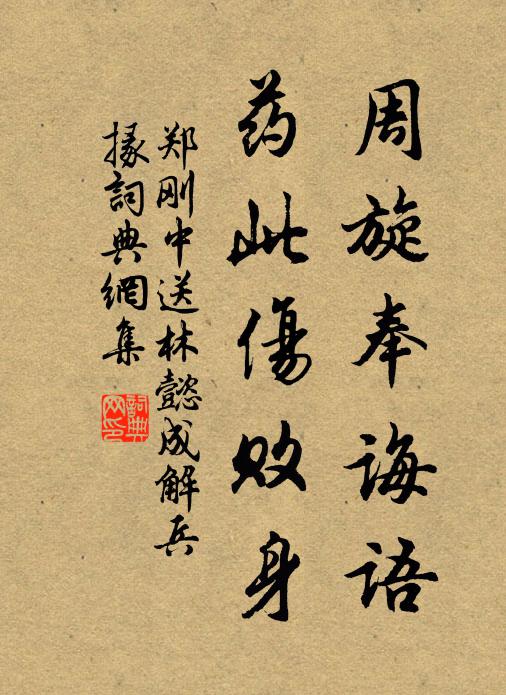 周旋奉誨语
药此傷败身
郑刚中送林懿成解兵
掾詞典網集
詞典网印